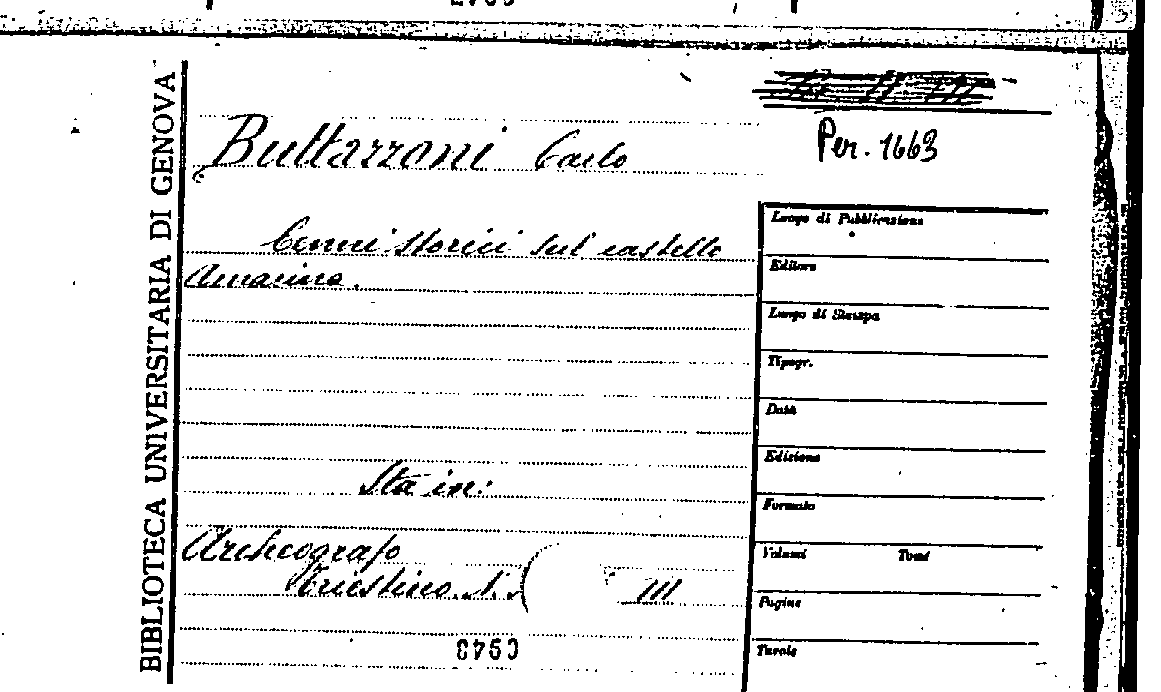 BIBLIOTECA UNIVERSITARIA DI GENOVA
Buttazzoni Carlo
Per. 1663
Cenni storici sul castello
Amarina.
Sta in:
Archeografo
Triestino. N. S
III
Luogo di Pubblicazione
Editore
Luogo di Stampa
Tipogr.
Data
Edizione
Formato
Volumi Tomi
Pagine
Tavole